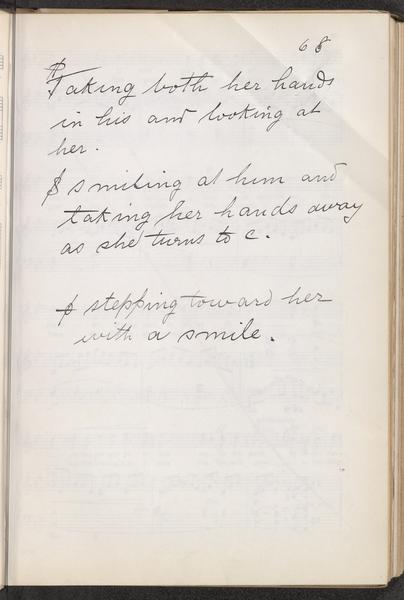 68
$ Taking both her hands
in his and looking at
her.
$ smiling at him and
taking her hands away
as she turns to C.
$ stepping toward her
with a smile.